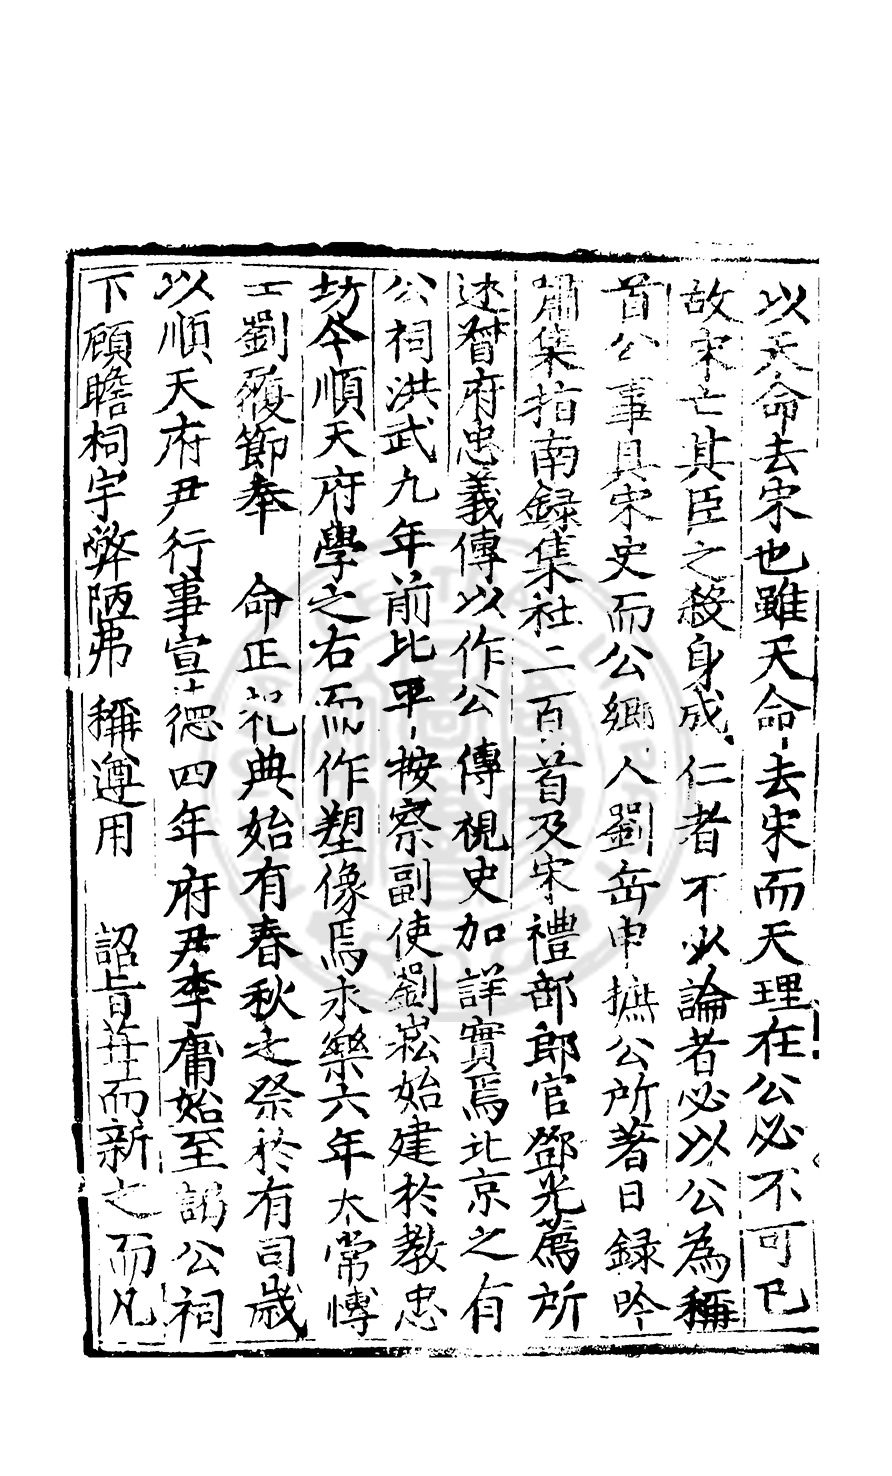 以天命去宋也雖天命去宋而天理在公必不可已
故宋亡其臣之殺身成仁者不少論者必以公為稱
首公事具宋史而公鄉人劉岳申摭公所著日録吟
嘯集指南録集杜二百首及宋禮部郎官鄧光薦所
述督府忠義傳以作公傳視史加詳實焉北京之有
公祠洪武九年前北平按察副使劉崧始建於教忠
坊今順天府學之右而作塑像焉永樂六年太常博
士劉履節奉 命正祀典始有春秋之祭於有司歲
以順天府尹行事宣德四年府尹李庸始至謁公祠
下顧瞻祠宇弊陋弗稱遵用 詔旨葺而新之而凡